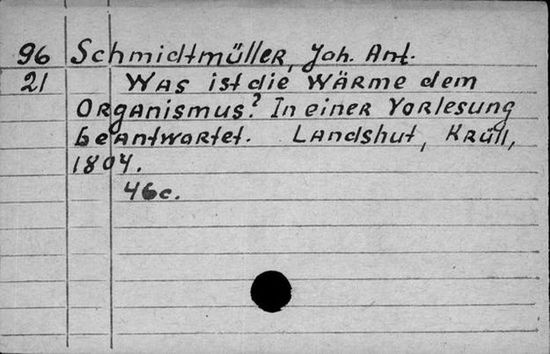 96 Schmidtmüller, Joh. Ant.
21 Was ist die Wärme dem
Organismus? In einer Vorlesung
beantwortet. Landshut, Krüll,
1804.
46c.